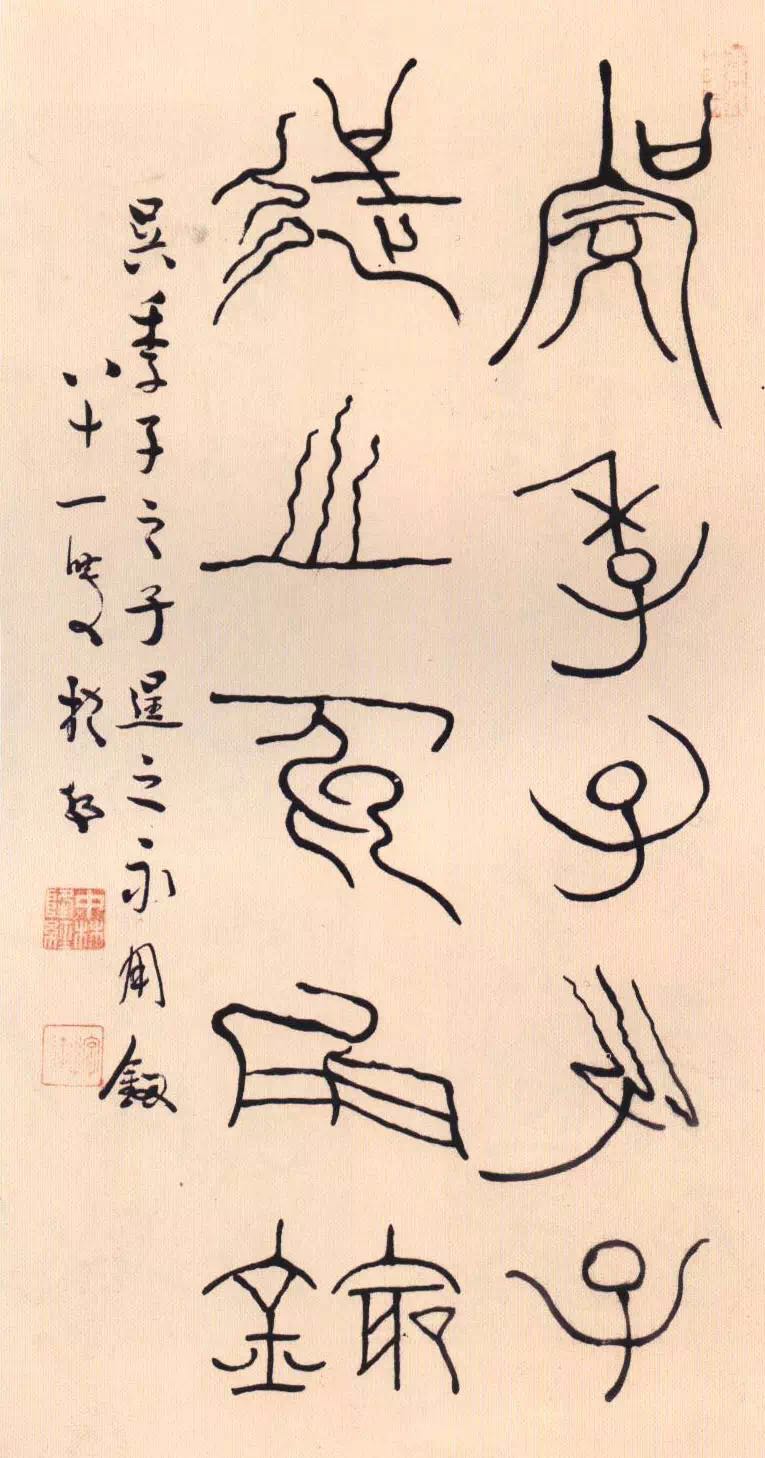 吳季子之子
逞之永用劍
吳季子之子逞之永用釼
八十一叟